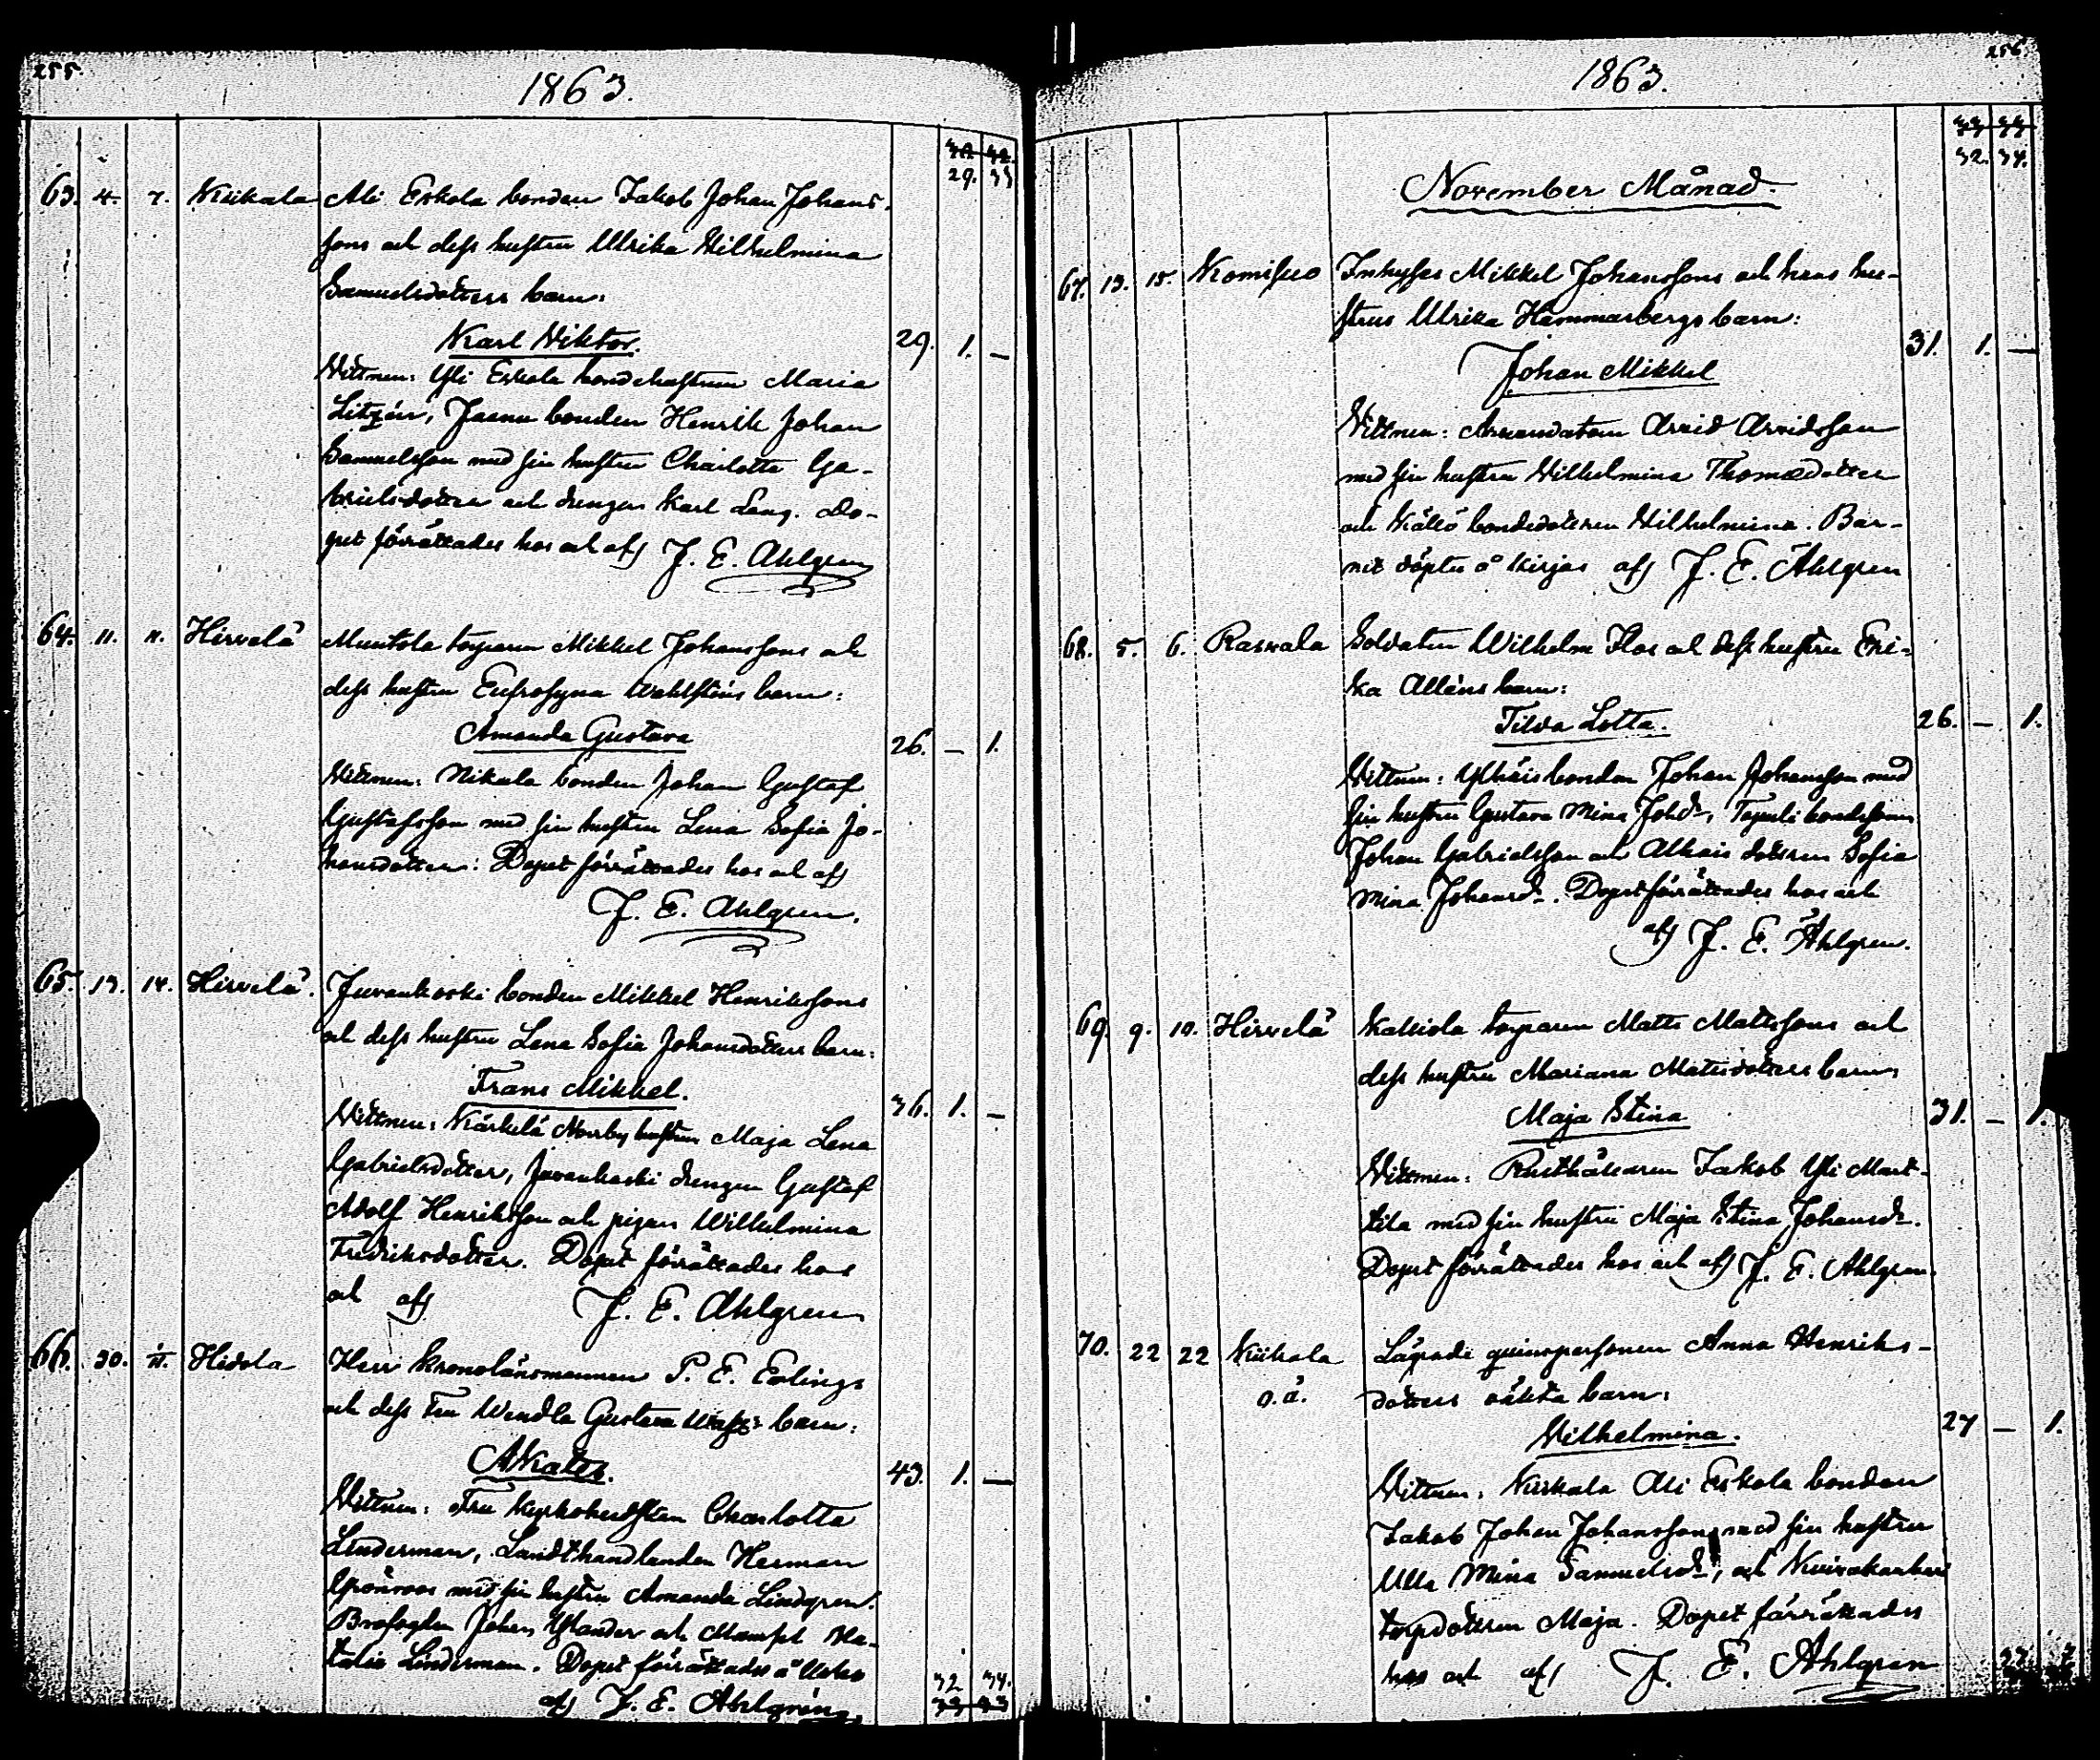 255.
1863.
32 42.
29. 33
63. 4. 7. Kiikala Ali Eskola bonden Jakob Johan Johans-
sons och dess hustru Ulrika Wilhelmina
Samuelsdotters barn:
Karl Wiktor. 29. 1. —
Wittnen: Yli Eskola bondehustrun Maria
Litzén, Jaenu bonden Henrik Johan
Samuelsson med sin hustru Charlotta Ga-
brielsdotter och drengen Karl Leng. Do-
pet förrättades hos och af J. E. Ahlgren
64. 11. 11. Hirvelä Muntola torparen Mikkel Johanssons och
dess hustru Eufrosyna Wahlsténs barn:
Amanda Gustava 26. — 1.
Wittnen: Nikula bonden Johan Gustaf
Gustafsson med sin hustru Lena Sofia Jo-
hansdotter: Dopet förrättades hos och af
J. E. Ahlgren.
65. 13. 14. Hirvelä. Juvankoski bonden Mikkel Henrikssons
och dess hustru Lena Sofia Johansdotters barn:
Frans Mikkel. 36. 1. —
Wittnen: Kärkelä Norrby hustrun Maja Lena
Gabrielsdotter, Juvankoski drengen Gustaf
Adolf Henriksson och pigan Wilhelmina
Fredriksdotter. Dopet förrättades hos
och af J. E. Ahlgren
66. 30. 11. Hidola Herr Kronolänsmannen P. E. Erlings
och dess Fru Wendla Gustava barn:
43. 1. —
Wittnen: Fru Kyrkoherdskan Charlotta
Linderman, Landthandlanden Herman
Grönroos med sin hustru Amanda Lindgren.
Brofogden Johan Ylander och Mamsel Na-
talia Linderman. Dopet förrättades å
af J. E. Ahlgren
32 34.
33 33
256
1863.
33 33
32. 34.
November Månad.
67. 13. 15. Komisuo Inhyses Mikkel Johanssons och hans hu-
strus Ulrika Hammarbergs barn:
31. 1. —
Johan Mikkel
Wittnen: Arrendatorn Arvid Arvidsson
med sin hustru Wilhelmina Thomædotter
och Källö bondedottren Wilhelmina. Bar-
net döptes å af J. E. Ahlgren
68. 5. 6. Rasvala Soldaten Wilhelm Flos och dess hustru Eri-
ka Alléns barn:
Tilda Lotta. 26. — 1.
Wittnen: Ylhäis bonden Johan Johansson med
sin hustru Gustava Mina Johdr, bondesonen
Johan Gabrielsson och Alhais dottren Sofia
Mina Johansdr. Dopet förrättades hos och
af J. E. Ahlgren.
69. 9. 10. Hirvelä Kalliola torparen Matts Mattssons och
dess hustru Mariana Matsdotters barn:
Maja Stina 31. — 1.
Wittnen: Rusthållaren Jakob Yli Mart-
tila med sin hustru Maja Stina Johansdr.
Dopet förrättades hos och af J. E. Ahlgren.
70. 22 22 Kiikala Lägrade qvinspersonen Anna Henriks-
o.ä. dotters oäkta barn:
Wilhelmina. 27 — 1.
Wittnen: Kiikala Ali Eskola bonden
Jakob Johan Johansson med sin hustru
Ulla Mina Samuelsdr, och
torpdottren Maja. Dopet förrättades
hos och af J. E. Ahlgren